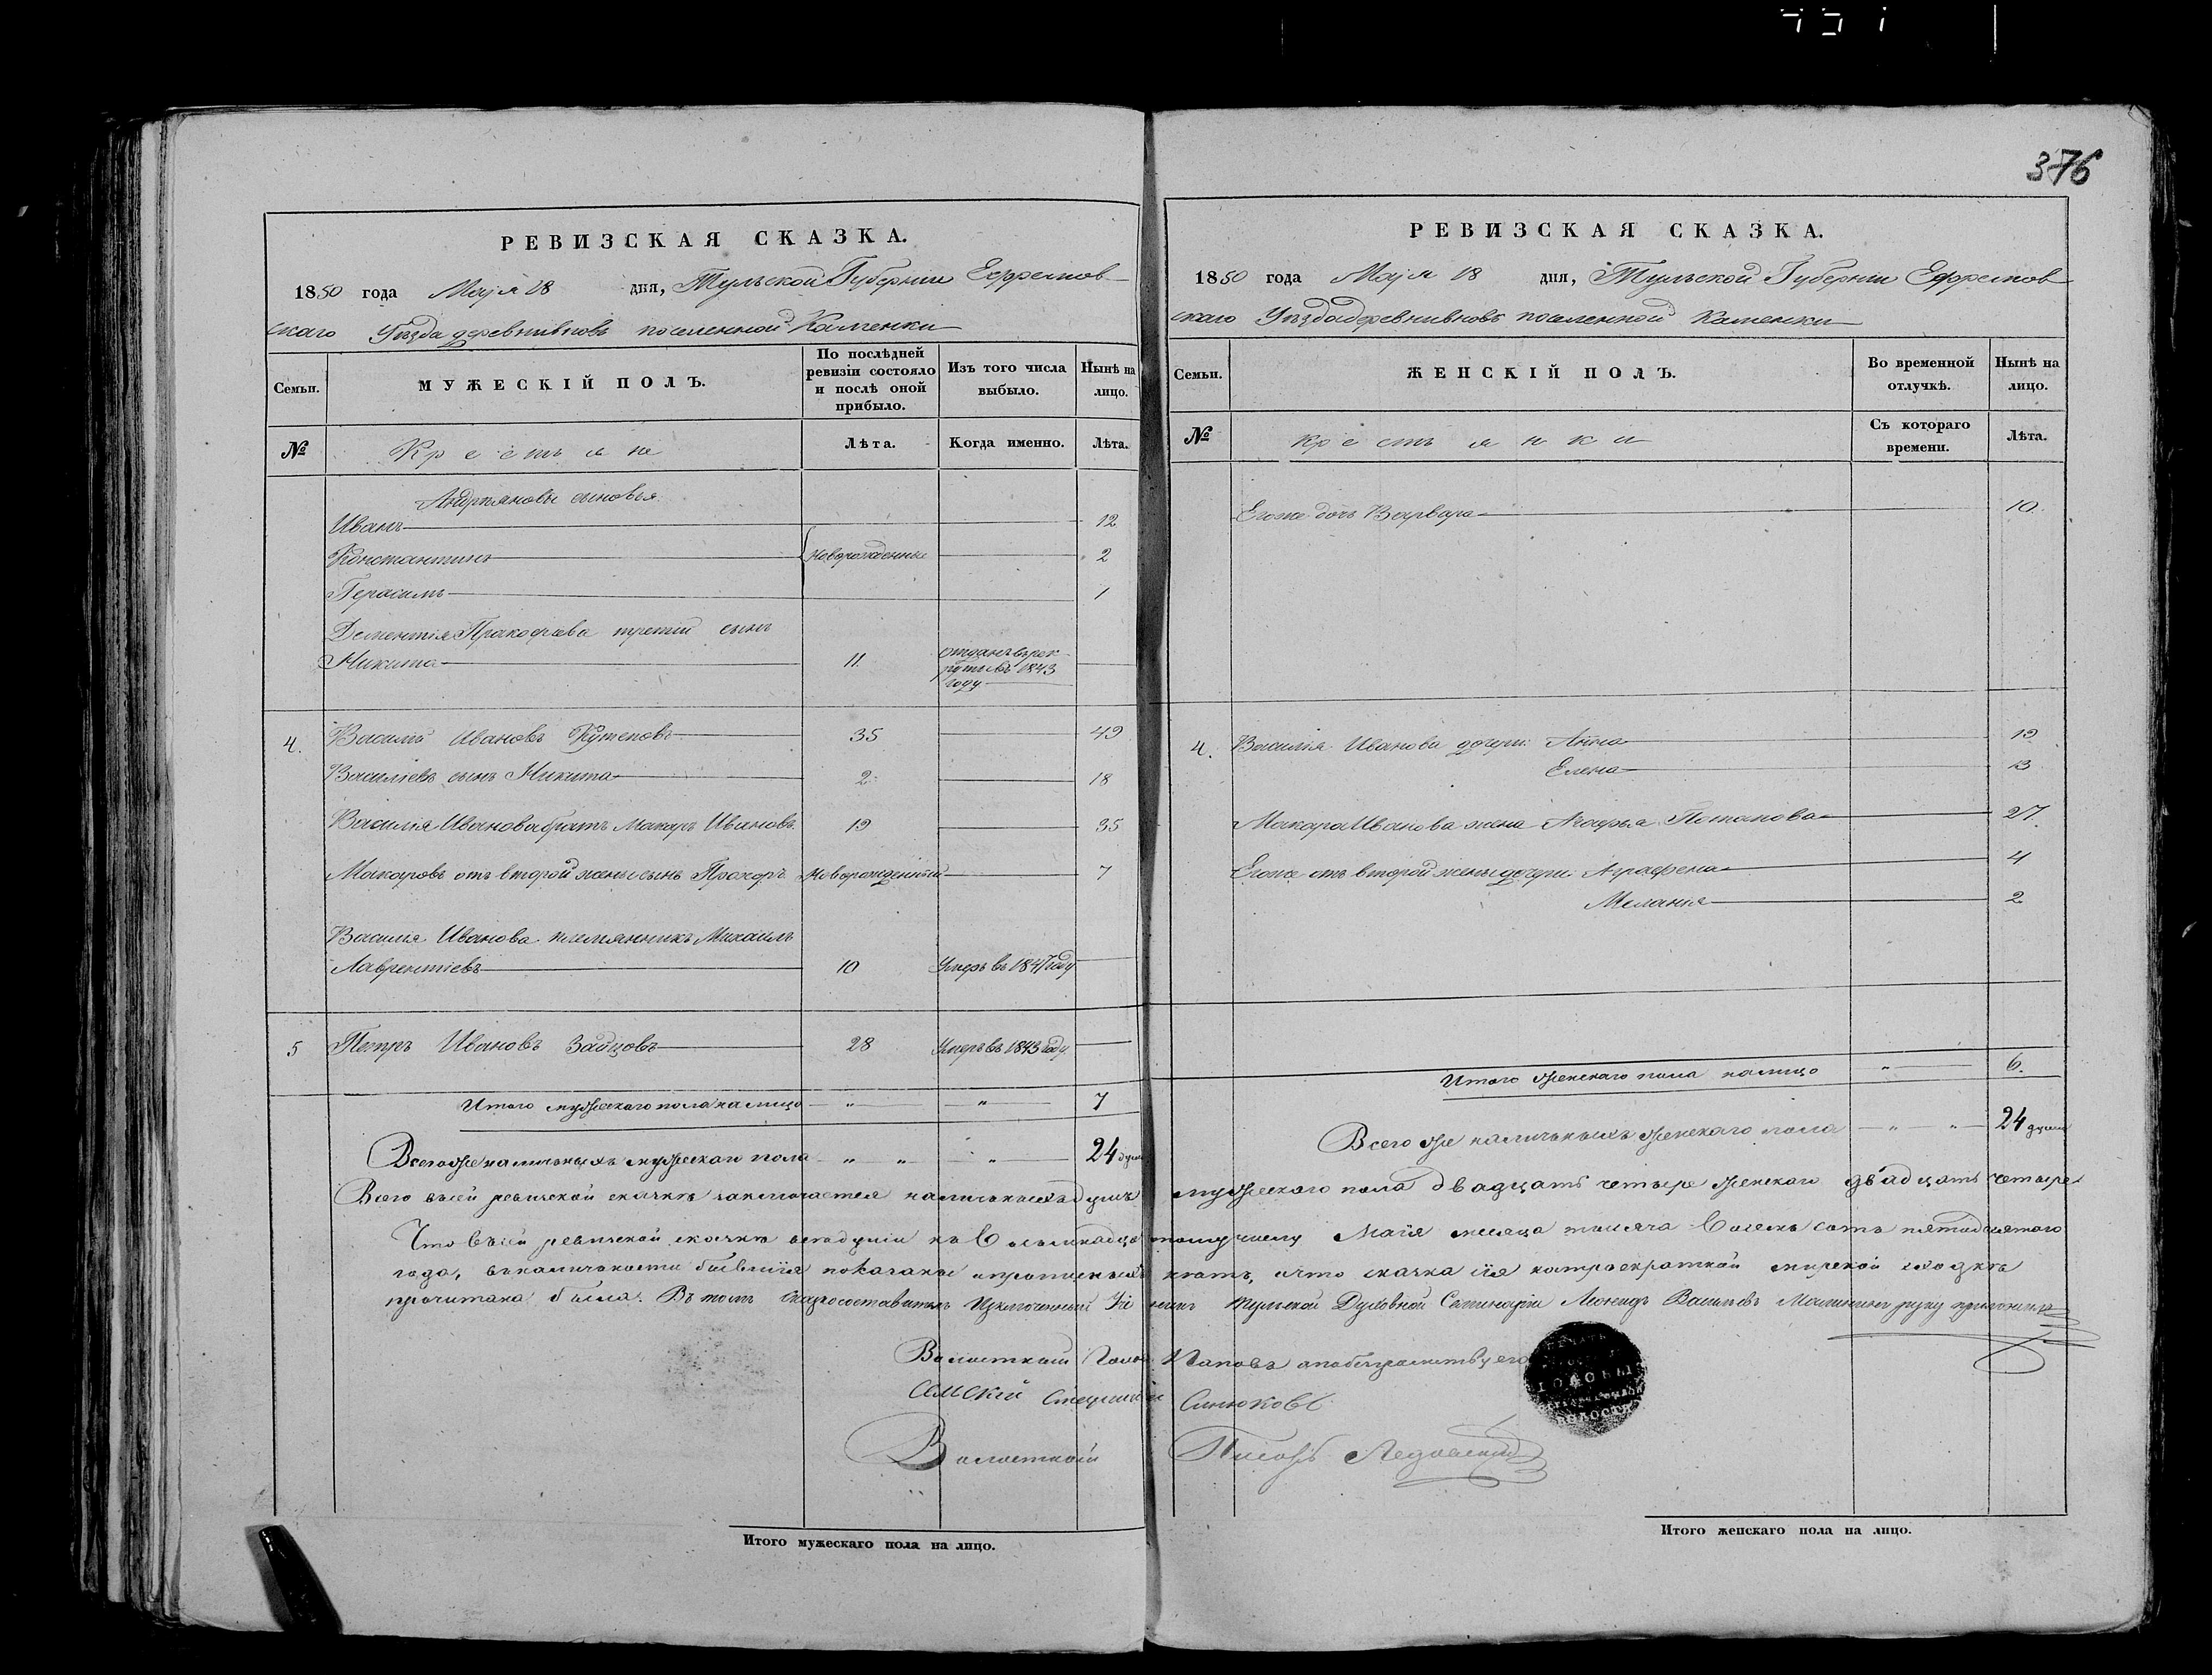 376
РЕВИЗСКАЯ СКАЗКА.
1850 года Маія 18 дня, Тульской Губерніи Ефремов
скаго Уѣзда деревни вновь поселенной Каменки
Семьи.
МУЖЕСКІЙ ПОЛЪ.
По послѣдней ревизіи состояло и послѣ оной прибыло.
Изъ того числа выбыло.
Нынѣ на лицо.
№
Крестьяне
Лѣта.
Когда именно.
Лѣта.
Андріяновы сыновья
Иванъ 12
Константинъ Новорожденные 2
Герасимъ 1
Дементія Пракофьева третій сынъ
Никита 11. отданъ въ рек
руты въ 1843
году
4. Василій Ивановъ Кутеповъ 35 49
Васильевъ сынъ Никита 2 18
Василія Иванова братъ Макаръ Ивановъ 19 35
Макаровъ отъ второй жены сынъ Прохоръ Новорожденный 7
Василія Иванова племянникъ Михаилъ
Лаврентіевъ 10 Умеръ въ 1847 году
5 Петръ Ивановъ Зайцовъ 28 Умеръ въ 1843 году
Итого мужескаго пола на лицо " " 7
Всего же наличныхъ мужеска пола " " " 24 души
РЕВИЗСКАЯ СКАЗКА.
1850 года Маія 18 дня, Тульской Губерніи Ефремов
скаго Уѣзда деревни вновь поселенной Каменки
Семьи.
ЖЕНСКІЙ ПОЛЪ.
Во временной отлучкѣ.
Нынѣ на лицо.
№
крестьянки
Съ котораго времени.
Лѣта.
Егоже дочь Варвара 10
4. Василія Иванова дочери Анна 19
Елена 13
Макара Иванова жена Агафья Потапова 27.
Егоже отъ второй жены дочери Аграфена 4
Меланія 2
Итого женскаго пола налицо " 6.
Всего же наличныхъ женскаго пола " " 24 души
Всего въ сей ревизской сказкѣ заключается наличныхъ душъ мужескаго пола двадцать четыре женскаго двадцать четыре
Что въ сей ревизской сказкѣ всѣ души къ восьмнадцатому числу Маія месяца тысяча восемь сотъ пятидесятого
года, въ наличности бывшія показаны и прописныхъ нѣтъ, и что сказка сія на мирской сходкѣ
прочитана была. Въ томъ Исключенный Тульской Духовной Семинаріи Леонидъ Васильевъ руку приложилъ
Волостной Голова Паповъ
Сельскій Синюковъ
Волостной Писарь
ГОЛОВЫ
ВОЛОСТИ
Итого мужескаго пола на лицо.
Итого женскаго пола на лицо.